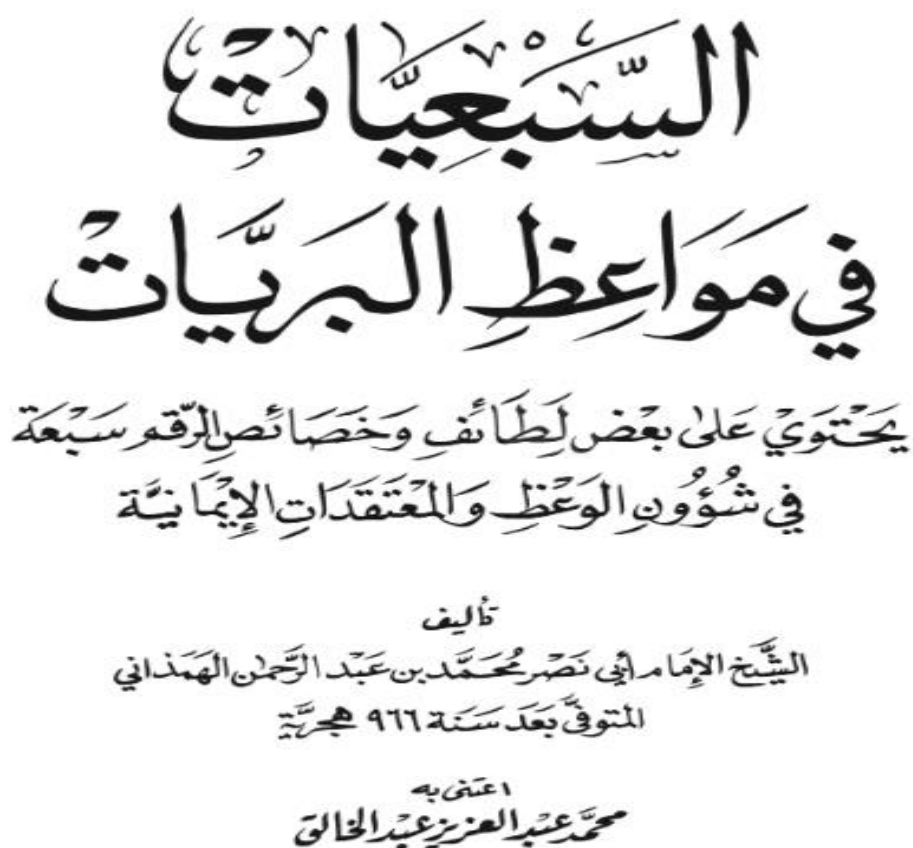 السَّبْعِيَّات
في مَوَاعِظِ البَرِيَّات
يَحْتَوِيْ عَلىٰ بَعْض لَطَائِفِ وَخَصَائصِ الرّقم سَبْعَة
في شُؤُونِ الوَعْظِ وَالمُعْتَقَدَاتِ الإِيْمَانيَّة
تأليف
الشَّيْخ الإِمَام أبي نَصْر مُحَمَّد بن عَبْد الرَّحمٰن الهَمَذاني
المتوفَّى بَعْدَ سَنَة ٩٦٦ هِجريَّة
اعتنى به
محمَّد عبْد العزيز عبْد الخالق